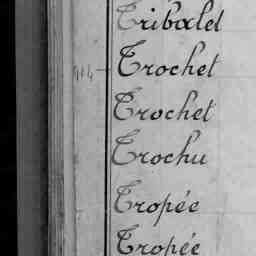 Tribalet
914 - Trochet
Trochet
Trochu
Tropée
Tropée